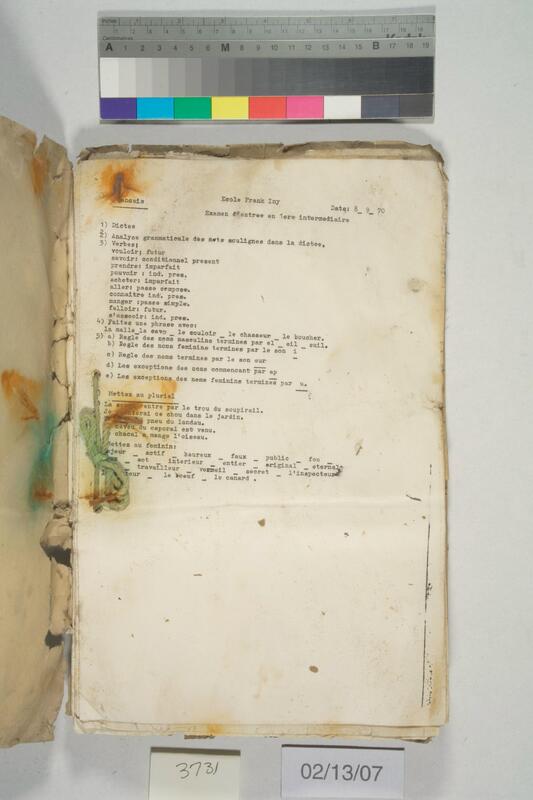 Ecole Frank Iny
Date: 8_ 9_ 70
Examen d'entree en 1ere intermediaire
1) Dictee
2) Analyse grammaticale des mots soulignes dans la dictee.
3) Verbes:
vouloir: futur
savoir: conditionnel present
prendre: imparfait
pouvoir : ind. pres.
acheter: imparfait
aller: passe compose.
connaitre ind. pres.
manger :passe simple.
falloir: futur.
s'asseoir: ind. pres.
4) Faites une phrase avec:
la malle_la cave _ le couloir _ le chasseur _ le boucher.
5) a) Regle des noms masculins termines par el _ eil _ euil.
b) Regle des noms feminins termines par le son i
c) Regle des noms termines par le son eur
d) Les exceptions des noms commencant par ap
e) Les exceptions des noms feminins termines par u.
Mettez au pluriel
La entre par le trou du soupirail.
ce chou dans le jardin.
pneu du landau.
du caporal est venu.
chacal a mange l'oiseau.
Mettez au feminin:
_ actif _ heureux _ faux _ public _ fou _
_ sot _ interieur _ entier _ original _ eternel
travailleur _ vermeil _ secret _ l'inspecteur
_ le boeuf _ le canard .
3731
02/13/07
Inches
Centimetres
A 1 2 3 4 5 6 M 8 9 10 11 12 13 14 15 B 17 18 19